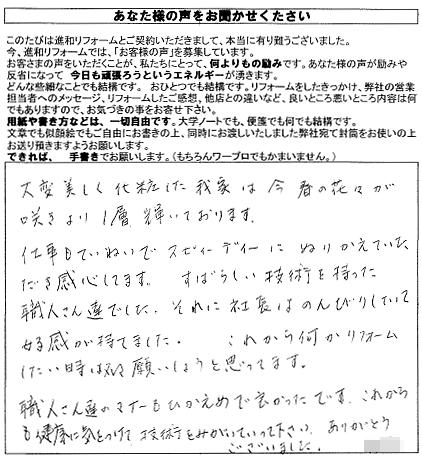 あなた様の声をお聞かせください
このたびは進和リフォームとご契約いただきまして、本当に有り難うございました。
今、進和リフォームでは、「お客様の声」を募集しています。
お客さまの声をいただくことが、私たちにとって、何よりもの励みです。あなた様の声が励みや
反省になって 今日も頑張ろうというエネルギーが湧きます。
どんな些細なことでも。結構です。 おひとつでも結構です。リフォームをしたきっかけ、弊社の営業
担当者へのメッセージ、リフォームしたご感想、他店との違いなど、良いところ悪いところ内容は何
でもありますので、お気づきの事をお寄せ下さい。
用紙や書き方などは、一切自由です。大学ノートでも、便箋でも何でも結構です。
文章でも似顔絵でもご自由にお書きの上、同時にお渡しいたしました弊社宛て封筒をお使いの上
お送り頂きますようお願いします。
できれば、 手書きでお願いします。(もちろんワープロでもかまいません。)
大変美しく化粧した我家は今春の花々が
咲きより1層輝いております。
仕事もていねいでスピィーディーにぬりかえていた
だき感心してます。 すばらしい技術を持った
職人さん達でした。それに社長はのんびりしていて
好感が持てました。 これから何かリフォーム
したい時はお願いしようと思ってます。
職人さん達のマナーもひかえめで良かったです。これから
も健康に気をつけて技術をみがいていって下さい。ありがとう
ございました。